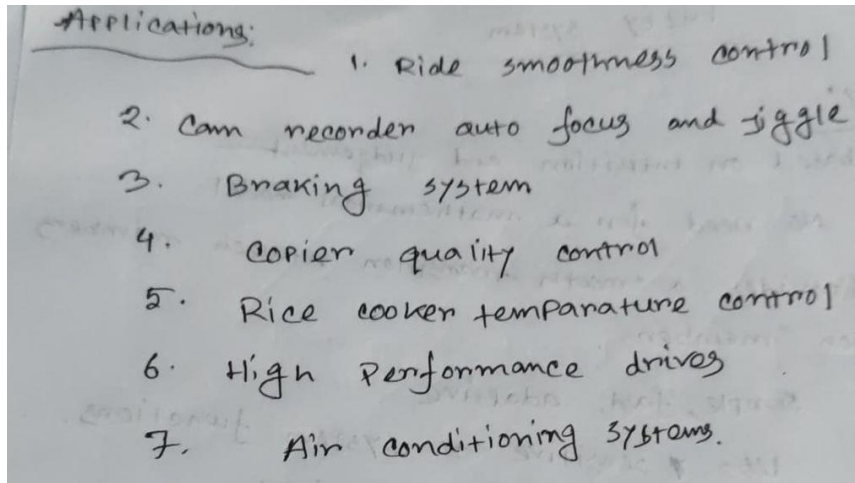 Applications:
1. Ride smoothness control
2. Cam recorder auto focus and jiggle
3. Braking system
4. Copier quality control
5. Rice cooker temparature control
6. High Performance drives
7. Air conditioning systems.